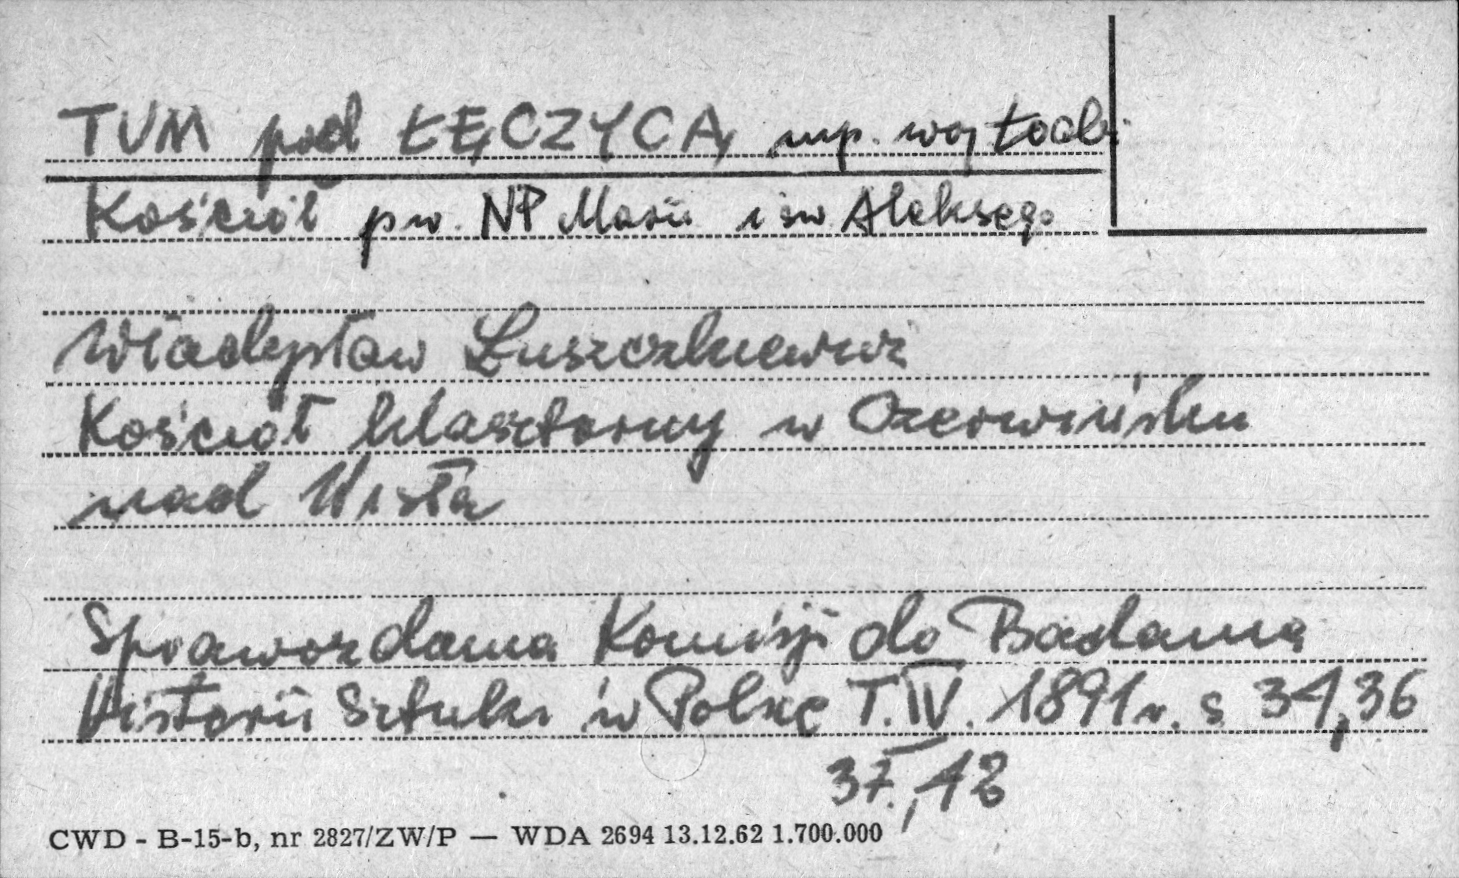 TUM pod ŁĘCZYCĄ, woj Łódz.
Kościół pw. NP Marii i św. Aleksego
Władysław Łuszczkiewicz
Kościół klasztorny w Czerwińsku
nad Wisłą
Sprawozdania Komisji do Badania
Historii Sztuki w Polsce T. IV. 1891 r. s 34, 36
37, 42
CWD - B-15-b, nr 2827/ZW/P — WDA 2694 13.12.62 1.700.000